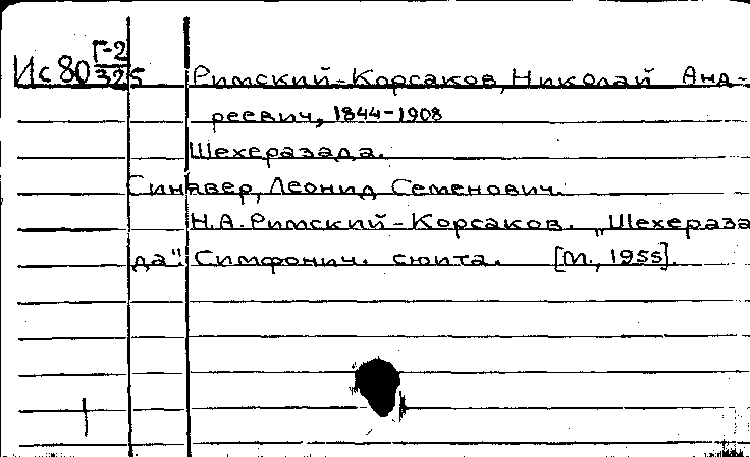 Г-2
Ис 80 325
Римский-Корсаков, Николай Анд-
реевич, 1844-1908
Шехеразада.
Синявер, Леонид Семенович.
Н.А. Римский-Корсаков. „Шехераза
да". Симфонич. сюита. [М., 1955].